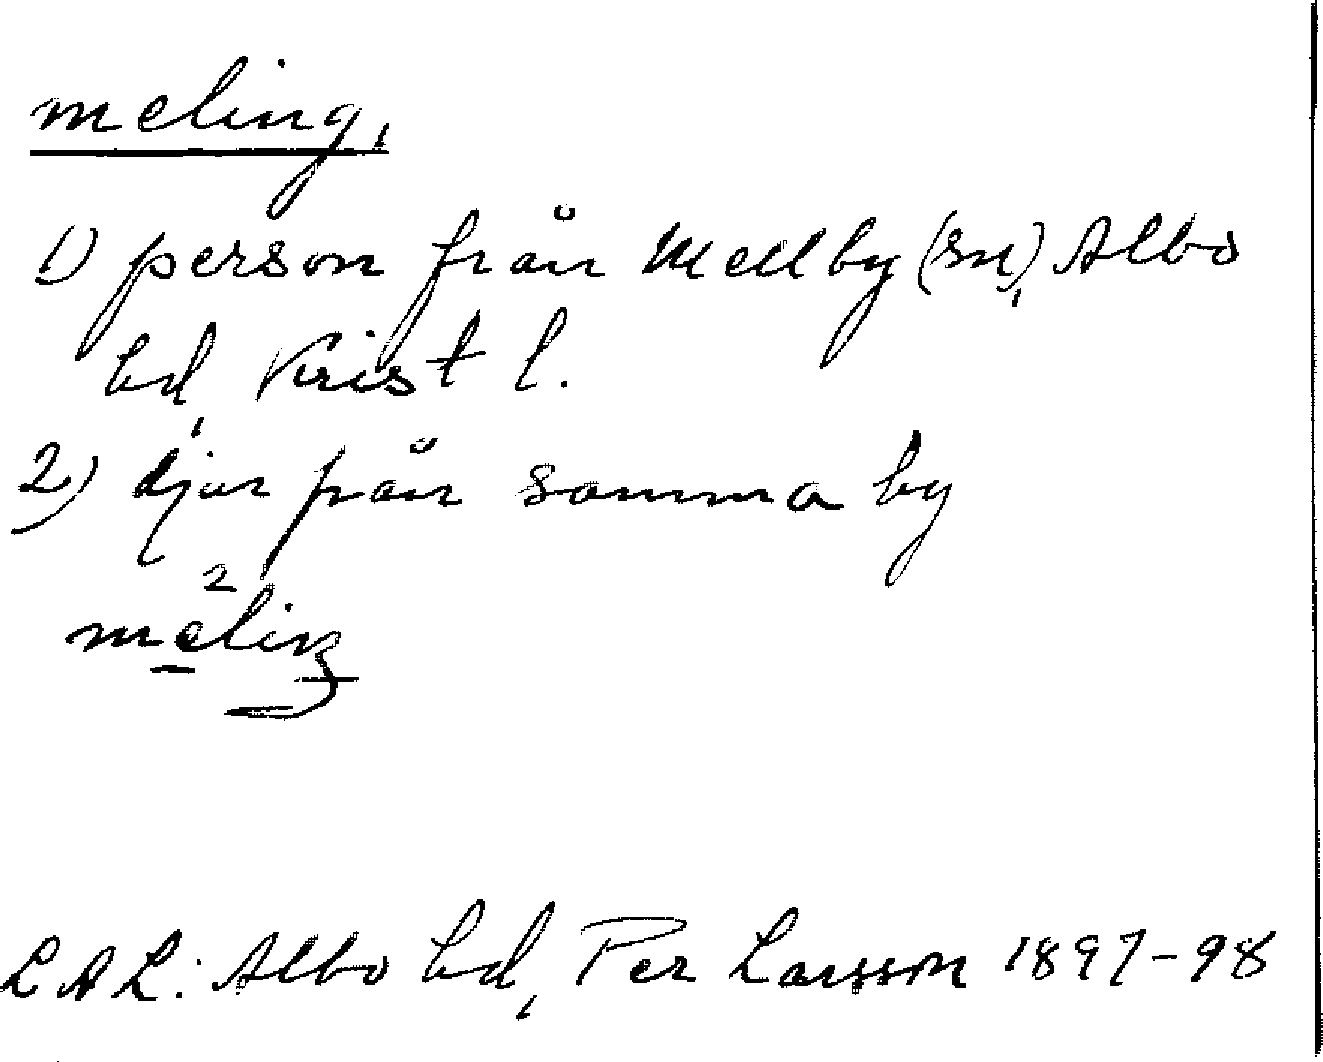 meling,
1) person från Mellby (sn), Albo
hd, Krist l.
2) djur från samma by
2
meling
LAL: Albo hd, Per Larsson 1897-98